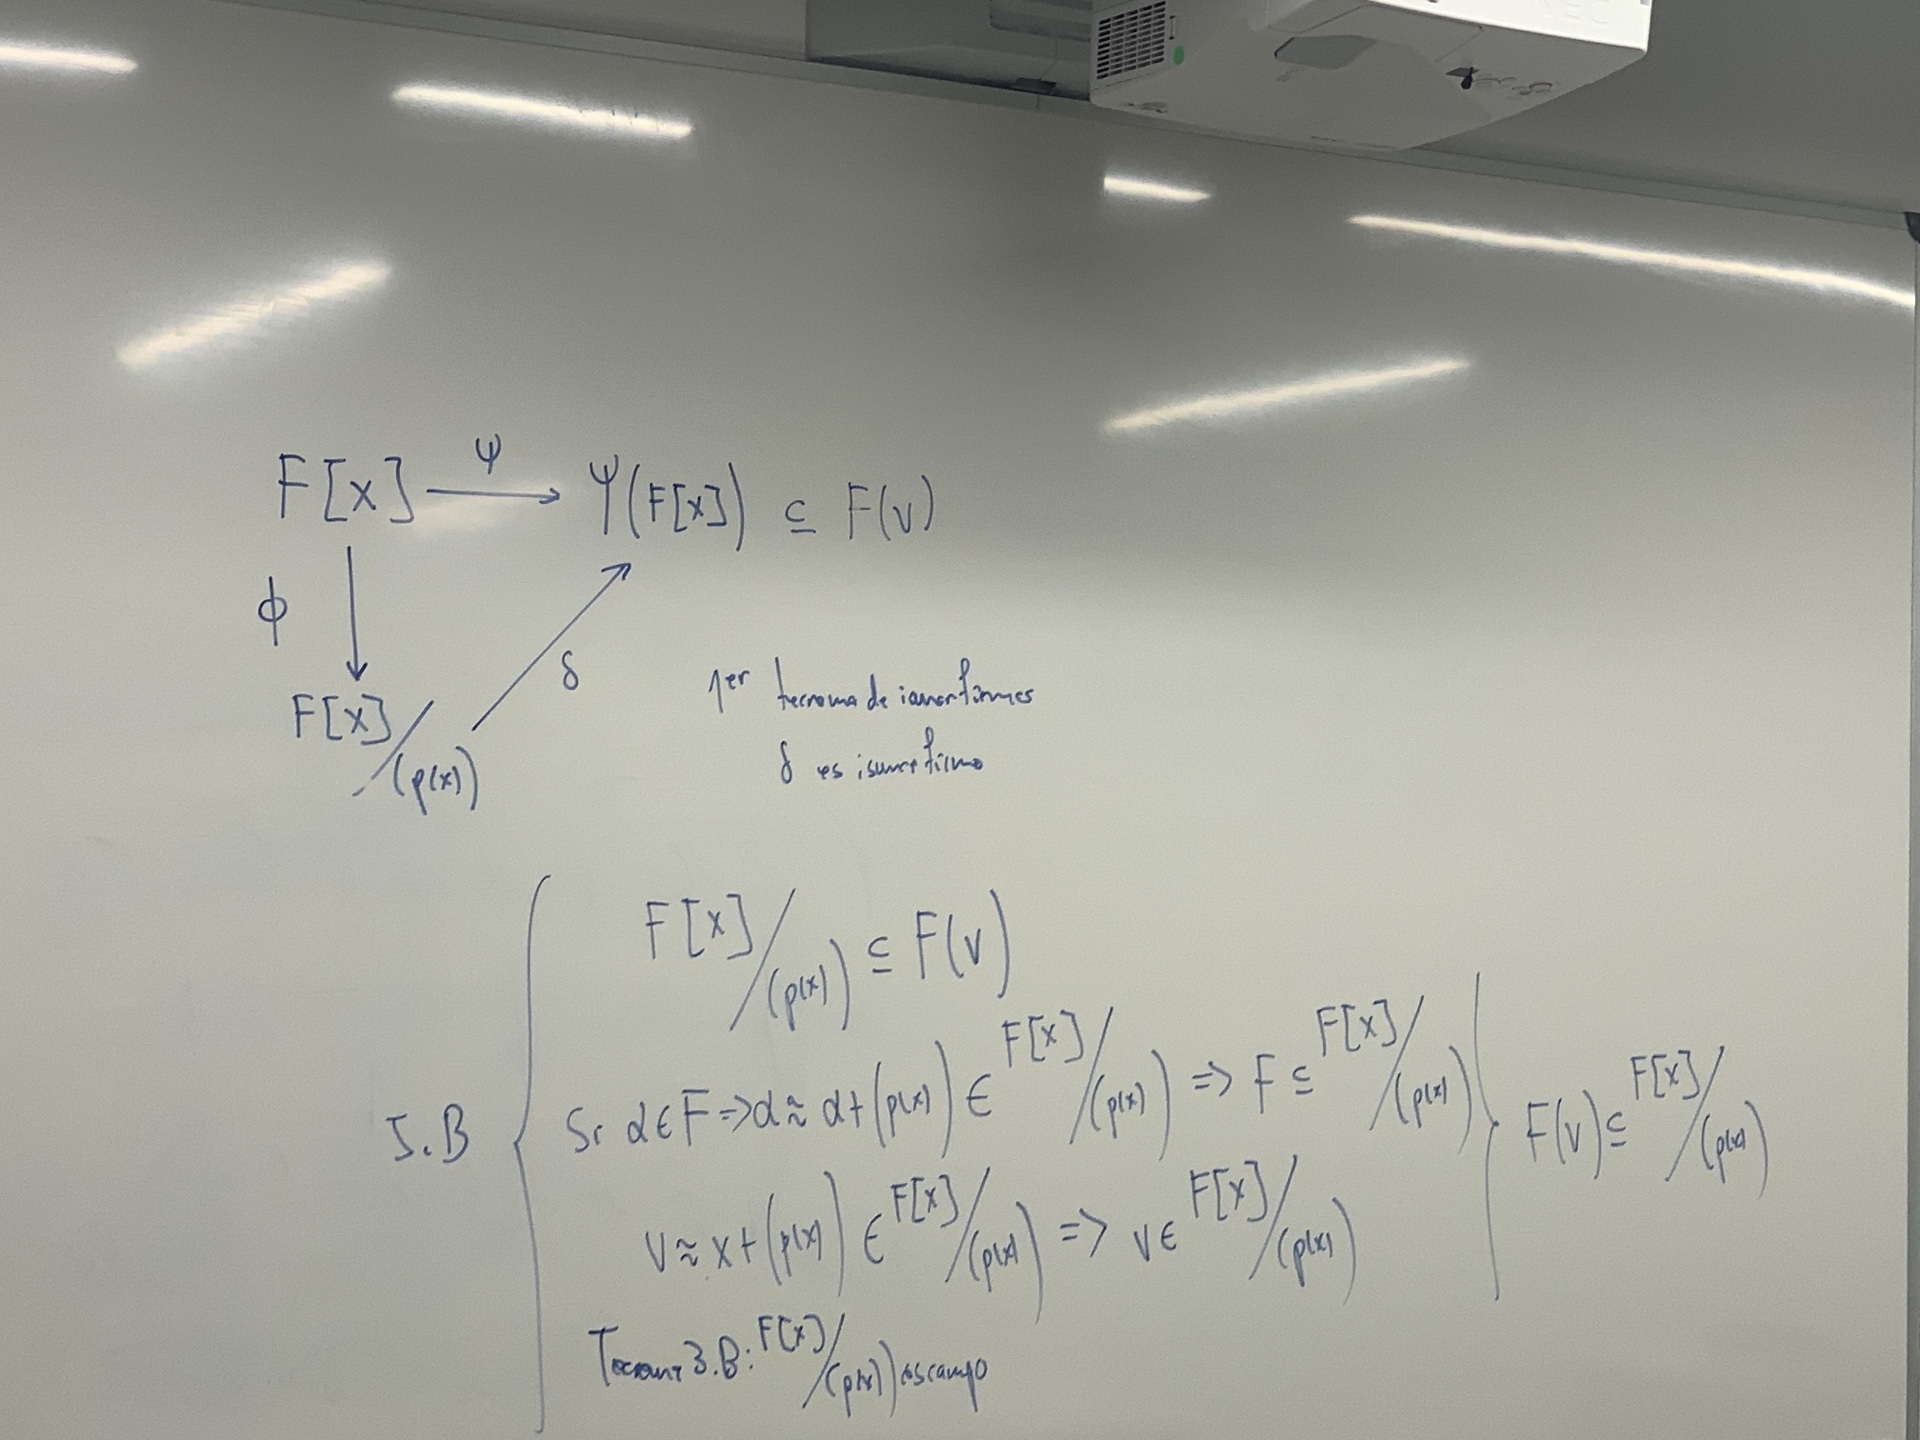 F[x] —ψ→ Ψ(F[x]) ⊆ F(v)
ϕ ↓
δ ↗
F[x]/(p(x))
1er teorema de isomorfismos
δ es isomorfismo
F[x]/(p(x)) ⊆ F(v)
5.B { Si α∈F ⇒ α≈α+(p(x)) ∈ F[x]/(p(x)) ⇒ F ⊆ F[x]/(p(x)) } F(v) ⊆ F[x]/(p(x))
v≈x+(p(x)) ∈ F[x]/(p(x)) ⇒ v∈ F[x]/(p(x))
Teorema 3.B: F[x]/(p(x)) es campo